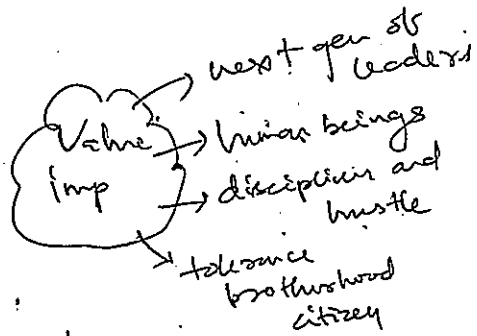 next gen of
leaders
Value
imp
human beings
discipline and
hustle
tolerance
brotherhood
citizen